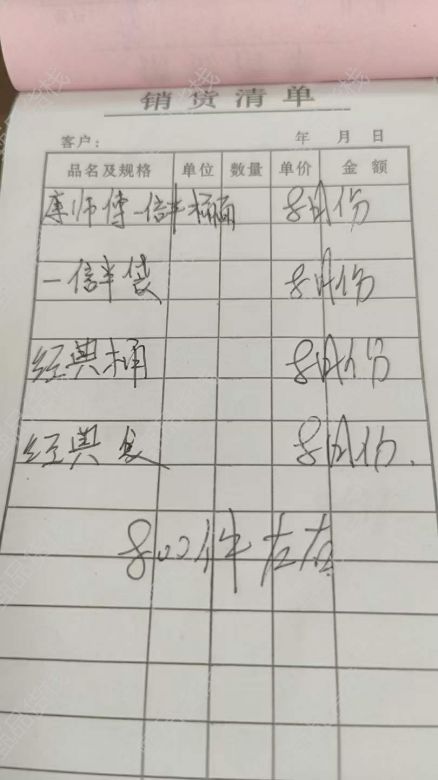 销货清单
客户： 年 月 日
品名及规格 单位 数量 单价 金额
康师傅一倍半桶面 8月份
一倍半袋 8月份
经典桶 8月份
经典袋 8月份.
800件左右